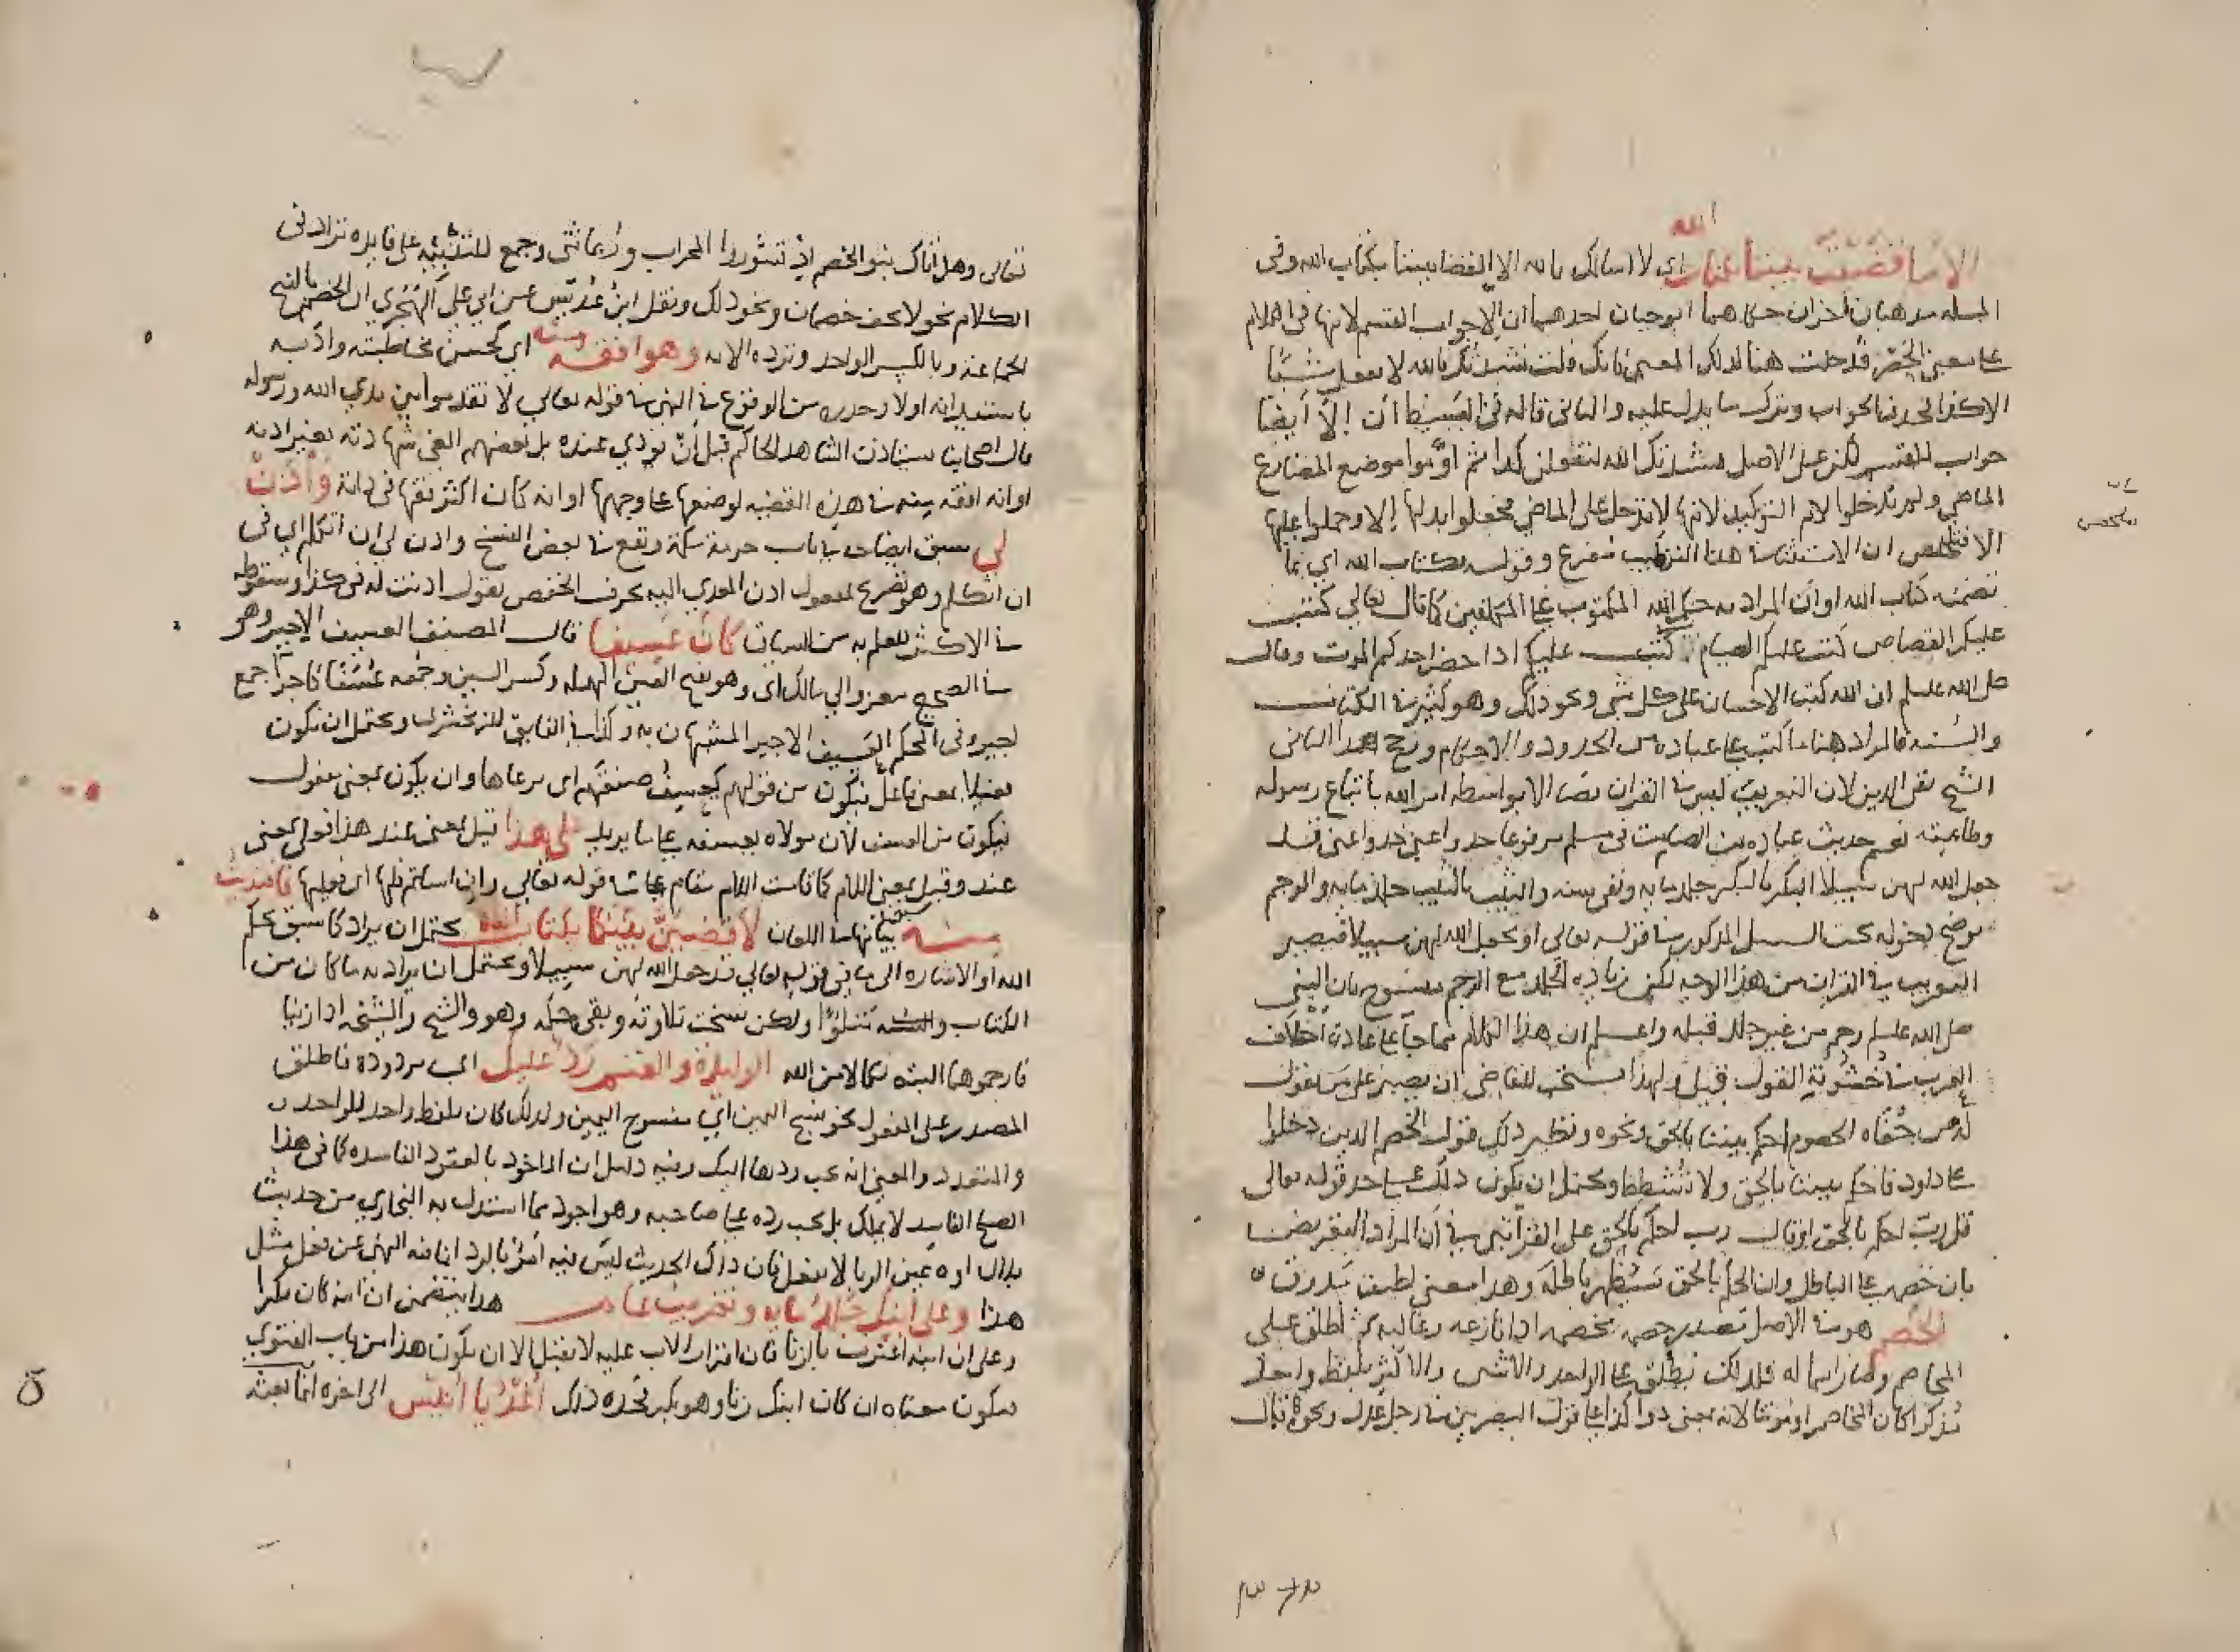 الله
الا ما قضيت بيننا بكتاب اي لا اسالك بالله الا القضا بيننا بكتاب الله وفي
المسله مذهبان اخران حكاهما ابو حيان احدهما ان الا جواب القسم لانها في الكلام
على معنى الحصر فدخلت هنا لذلك المعنى كانك قلت نشدتك بالله لا تفعل شيئا
الا كذا فحذف الجواب وترك ما يدل عليه والثاني قاله في البسيط ان إلا أيضا
جواب للقسم لكن على الاصل نشدتك الله لتفعلن كذا ثم اوقعوا موضع المضارع
الماضي ولم يدخلوا لام التوكيد لانها لا تدخل على الماضي فجعلوا بدلها إلا وحملوا عليها
الا فتلخص ان الاستثنا في هذا التركيب مفرغ وقوله بكتاب الله اي بما
تضمنه كتاب الله او ان المراد به حكم الله المكتوب على المكلفين كما قال تعالى كتب
عليكم القصاص كتب عليكم الصيام كتب عليكم اذا حضر احدكم الموت وقال
صلى الله عليه وسلم ان الله كتب الاحسان على كل شي ونحو ذلك وهو كثير في الكتاب
والسنه فالمراد هنا ما كتب على عباده من الحدود والاحكام ورجح هذا الثاني
الشيخ تقي الدين لان التغريب ليس في القران نصا الا بواسطه امر الله باتباع رسوله
وطاعته نعم حديث عباده بن الصامت في مسلم مرفوعا خذوا عني خذوا عني قد
جعل الله لهن سبيلا البكر بالبكر جلد مايه ونفي سنه والثيب بالثيب جلد مايه والرجم
يوضح دخوله تحت السبيل المذكور في قوله تعالى او يجعل الله لهن سبيلا فيصير
التغريب في القران من هذا الوجه لكن زياده الجلد مع الرجم منسوخ بان النبي
صلى الله عليه وسلم رجم من غير جلد قبله واعلم ان هذا الكلام مما جا على عادة اخلاف
العرب في خشونة القول قيل ولهذا يستحب للقاضي ان يصبر على من يقول
له من جفاه الخصوم احكم بيننا بالحق ونحوه ونظير ذلك قول الخصم الذين دخلوا
على داود فاحكم بيننا بالحق ولا تشطط ويحتمل ان يكون ذلك على حد قوله تعالى
قل رب احكم بالحق او قال رب احكم بالحق على القراتين في أن المراد التعريض
بان خصمه على الباطل وان الحكم بالحق سيظهر باطله وهذا معنى لطيف
الخصم هو في الاصل مصدر خصمه يخصمه اذا نازعه وغالبه ثم اطلق على
المخاصم وصار اسما له فلذلك يطلق على الواحد والاثنين والاكثر بلفظ واحد
مذكرا كان المخاصم او مونثا لانه بمعنى ذوا كذا على قول البصريين في رجل عدل ونحوه قال
تعالى وهل أتاك نبؤ الخصم إذ تسوروا المحراب وربما ثنى وجمع للتنبيه على فايده تزاد في
الكلام نحو لا تخف خصمان ونحو ذلك ونقل ابن عديس عن ابي علي الهجري ان الخصم بالفتح
الجماعة وبالكسر الواحد وترده الايه وهو افقه منه اي لحسن مخاطبته وادبه
باستيذانه اولا وحذره من الوقوع في النهي في قوله تعالى لا تقدموا بين يدي الله ورسوله
قال اصحابنا يستاذن الشاهد الحاكم قبل أن يودي عنده بل بعضهم الغى شهادته بغير اذنه
او انه افقه منه في هذه القضيه لوصفها على وجهها او انه كان اكثر فقها في ذاته وأذن
لي سبق ايضاحه في باب حرمة مكة ووقع في بعض النسخ واذن لي ان اتكلم اي في
ان اتكلم وهو تصريح لمفعول اذن المعدي اليه بحرف الخفض تقول اذنت له في كذا وسقوطه
في الاكثر للعلم به من السياق كان عسيفا قال المصنف العسيف الاجير وهو
في الصحيح معزوا الى مالك اي وهو بفتح العين المهمله وكسر السين وجمعه عسفا كاجرآ جمع
اجير وفي المحكم العسيف الاجير المستهان به وكذا في الفايق للزمخشري ويحتمل ان يكون
فعيلا بمعنى فاعل فيكون من قولهم يعسف ضيعتهم اي يرعاها وان يكون بمعنى مفعول
فيكون من العسف لان مولاه يعسفه على ما يريد على هذا قيل بمعنى عند هذا فعلى بمعنى
عند وقيل بمعنى اللام كما قامت اللام مقام على في قوله تعالى وان اساتم فلها اي فعليها فافتديت
منه سيق بيانها في اللعان لاقضين بينكما بكتاب الله يحتمل ان يراد كما سبق بحكم
الله او الاشاره الى ما في قوله تعالى قد جعل الله لهن سبيلا ويحتمل ان يراد به ما كان من
الكتاب والسنه متلوا ولكن نسخت تلاوته وبقي حكمه وهو والشيخ والشيخه اذا زنيا
فارجموهما البته نكالا من الله الوليدة والغنم رد عليك اي مردوده فاطلق
المصدر على المفعول نحو نسج اليمن اي منسوج اليمن ولذلك كان بلفظ واحد للواحد
والمتعدد والمعنى انه يجب ردها اليك وفيه دليل ان الماخوذ بالعقود الفاسده كما في هذا
الصلح الفاسد لا يملك بل يجب رده على صاحبه وهو اجود مما استدل به البخاري من حديث
بلال اوه عين الربا لا تفعل فان ذلك الحديث ليس فيه أمر بالرد انما فيه النهي عن فعل مثل
هذا وعلى ابنك جلد مايه وتغريب عام هذا يتضمن ان ابنه كان بكرا
وعلى ان ابنه اعترف بالزنا فان اقرار الاب عليه لا يقبل الا ان يكون هذا من باب الفتوى
فيكون معناه ان كان ابنك زنا وهو بكر فحده ذلك أغد يا أنيس الى اخره انما بعثه